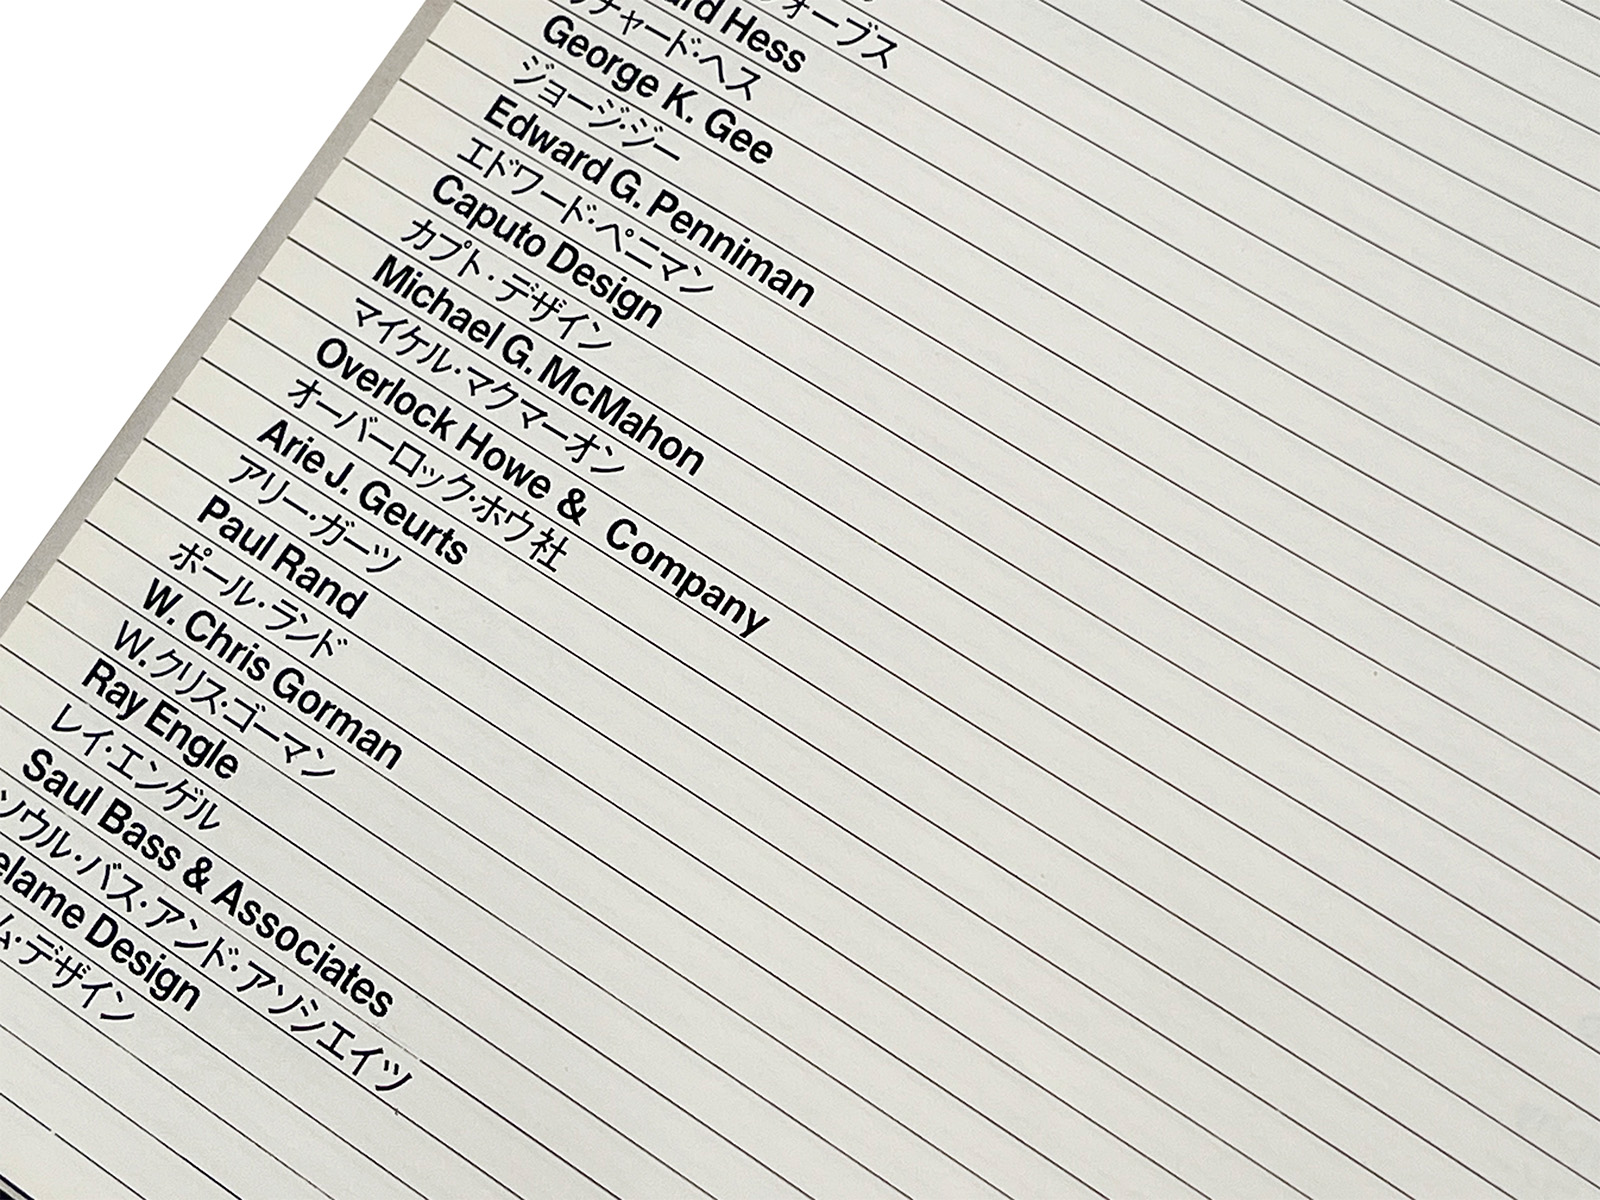 ォーブス
Hess
チャード・ヘス
George K. Gee
ジョージ・ジー
Edward G. Penniman
エドワード・ペニマン
Caputo Design
カプト・デザイン
Michael G. McMahon
マイケル・マクマーオン
Overlock Howe & Company
オーバーロック・ホウ社
Arie J. Geurts
アリー・ガーツ
Paul Rand
ポール・ランド
W. Chris Gorman
W.クリス・ゴーマン
Ray Engle
レイ・エンゲル
Saul Bass & Associates
ソウル・バス・アンド・アソシエイツ
elame Design
ム・デザイン